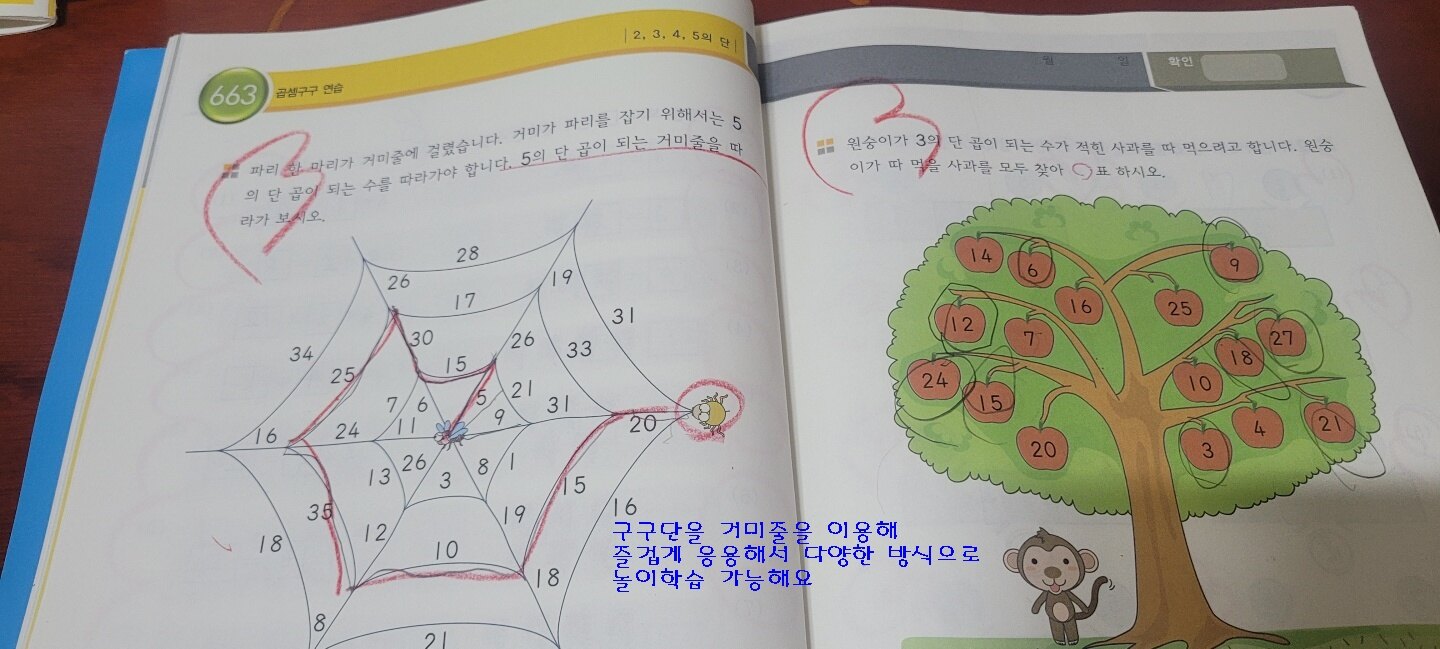 2, 3, 4, 5의 단
663 곱셈구구 연습
파리 한 마리가 거미줄에 걸렸습니다. 거미가 파리를 잡기 위해서는 5
의 단 곱이 되는 수를 따라가야 합니다. 5의 단 곱이 되는 거미줄을 따
라가 보시오.
28
26
19
17
31
30
26
34
15
33
25
21
7
6
5
9
31
20
16
24
11
13
26
3
8
1
15
35
12
19
16
18
10
18
8
21
월 일 확인
원숭이가 3의 단 곱이 되는 수가 적힌 사과를 따 먹으려고 합니다. 원숭
이가 따 먹을 사과를 모두 찾아 ○표 하시오.
14
6
9
16
25
12
7
27
18
24
15
10
20
3
4
21
구구단을 거미줄을 이용해
즐겁게 응용해서 다양한 방식으로
놀이학습 가능해요